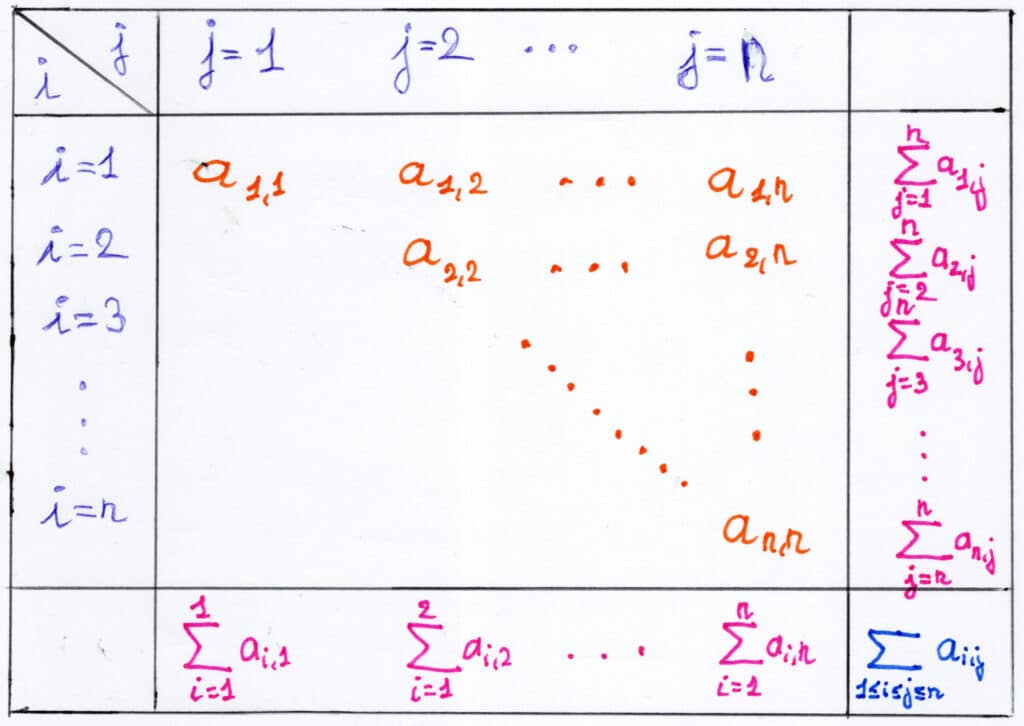 i j j=1 j=2 ... j=n
i=1 a_{1,1} a_{1,2} ... a_{1,n} \sum_{j=1}^{n} a_{1,j}
i=2 a_{2,2} ... a_{2,n} \sum_{j=2}^{n} a_{2,j}
i=3 \sum_{j=3}^{n} a_{3,j}
i=n a_{n,n} \sum_{j=n}^{n} a_{n,j}
\sum_{i=1}^{1} a_{i,1} \sum_{i=1}^{2} a_{i,2} ... \sum_{i=1}^{n} a_{i,n} \sum_{1≤i≤j≤n} a_{i,j}